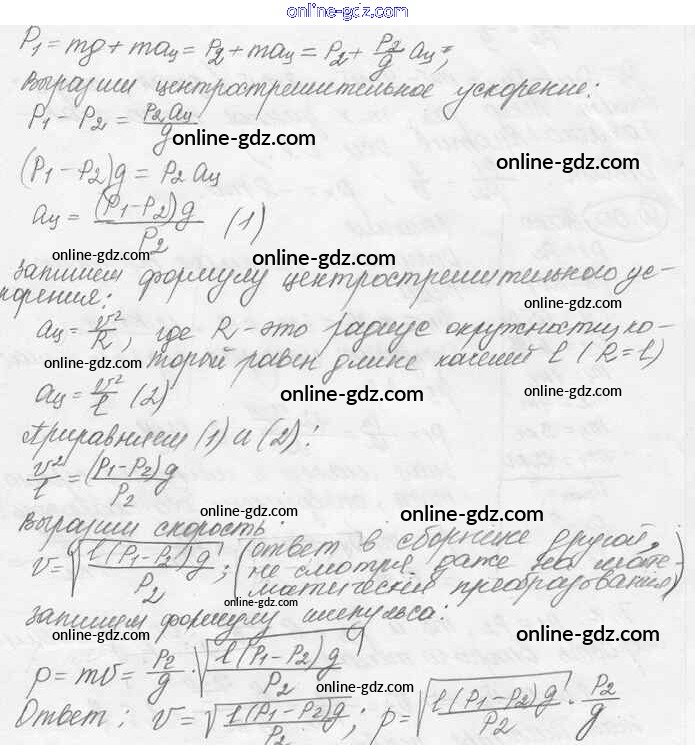 online-gdz.com
P₁ = mg + maц = P₂ + maц = P₂ + P₂/g aц;
Выразим центростремительное ускорение:
P₁ - P₂ = P₂aц/g
online-gdz.com
online-gdz.com
(P₁ - P₂)g = P₂aц
aц = (P₁ - P₂)g/P₂ (1)
online-gdz.com
online-gdz.com
Запишем формулу центростремительного ус-
корения:
online-gdz.com
aц = v²/R, где R - это радиус окружности, ко-
online-gdz.com
торый равен длине качелей l (R = l)
aц = v²/l (2)
online-gdz.com
online-gdz.com
Приравняем (1) и (2):
v²/l = (P₁ - P₂)g/P₂
Выразим скорость:
online-gdz.com
online-gdz.com
v = √(l(P₁ - P₂)g/P₂); (ответ в сборнике другой,
не смотря даже на мате-
матические преобразования)
online-gdz.com
Запишем формулу импульса:
online-gdz.com
online-gdz.com
p = mv = P₂/g · √(l(P₁ - P₂)g/P₂)
online-gdz.com
Ответ: v = √(l(P₁ - P₂)g/P₂); p = √(l(P₁ - P₂)g/P₂) · P₂/g
online-gdz.com